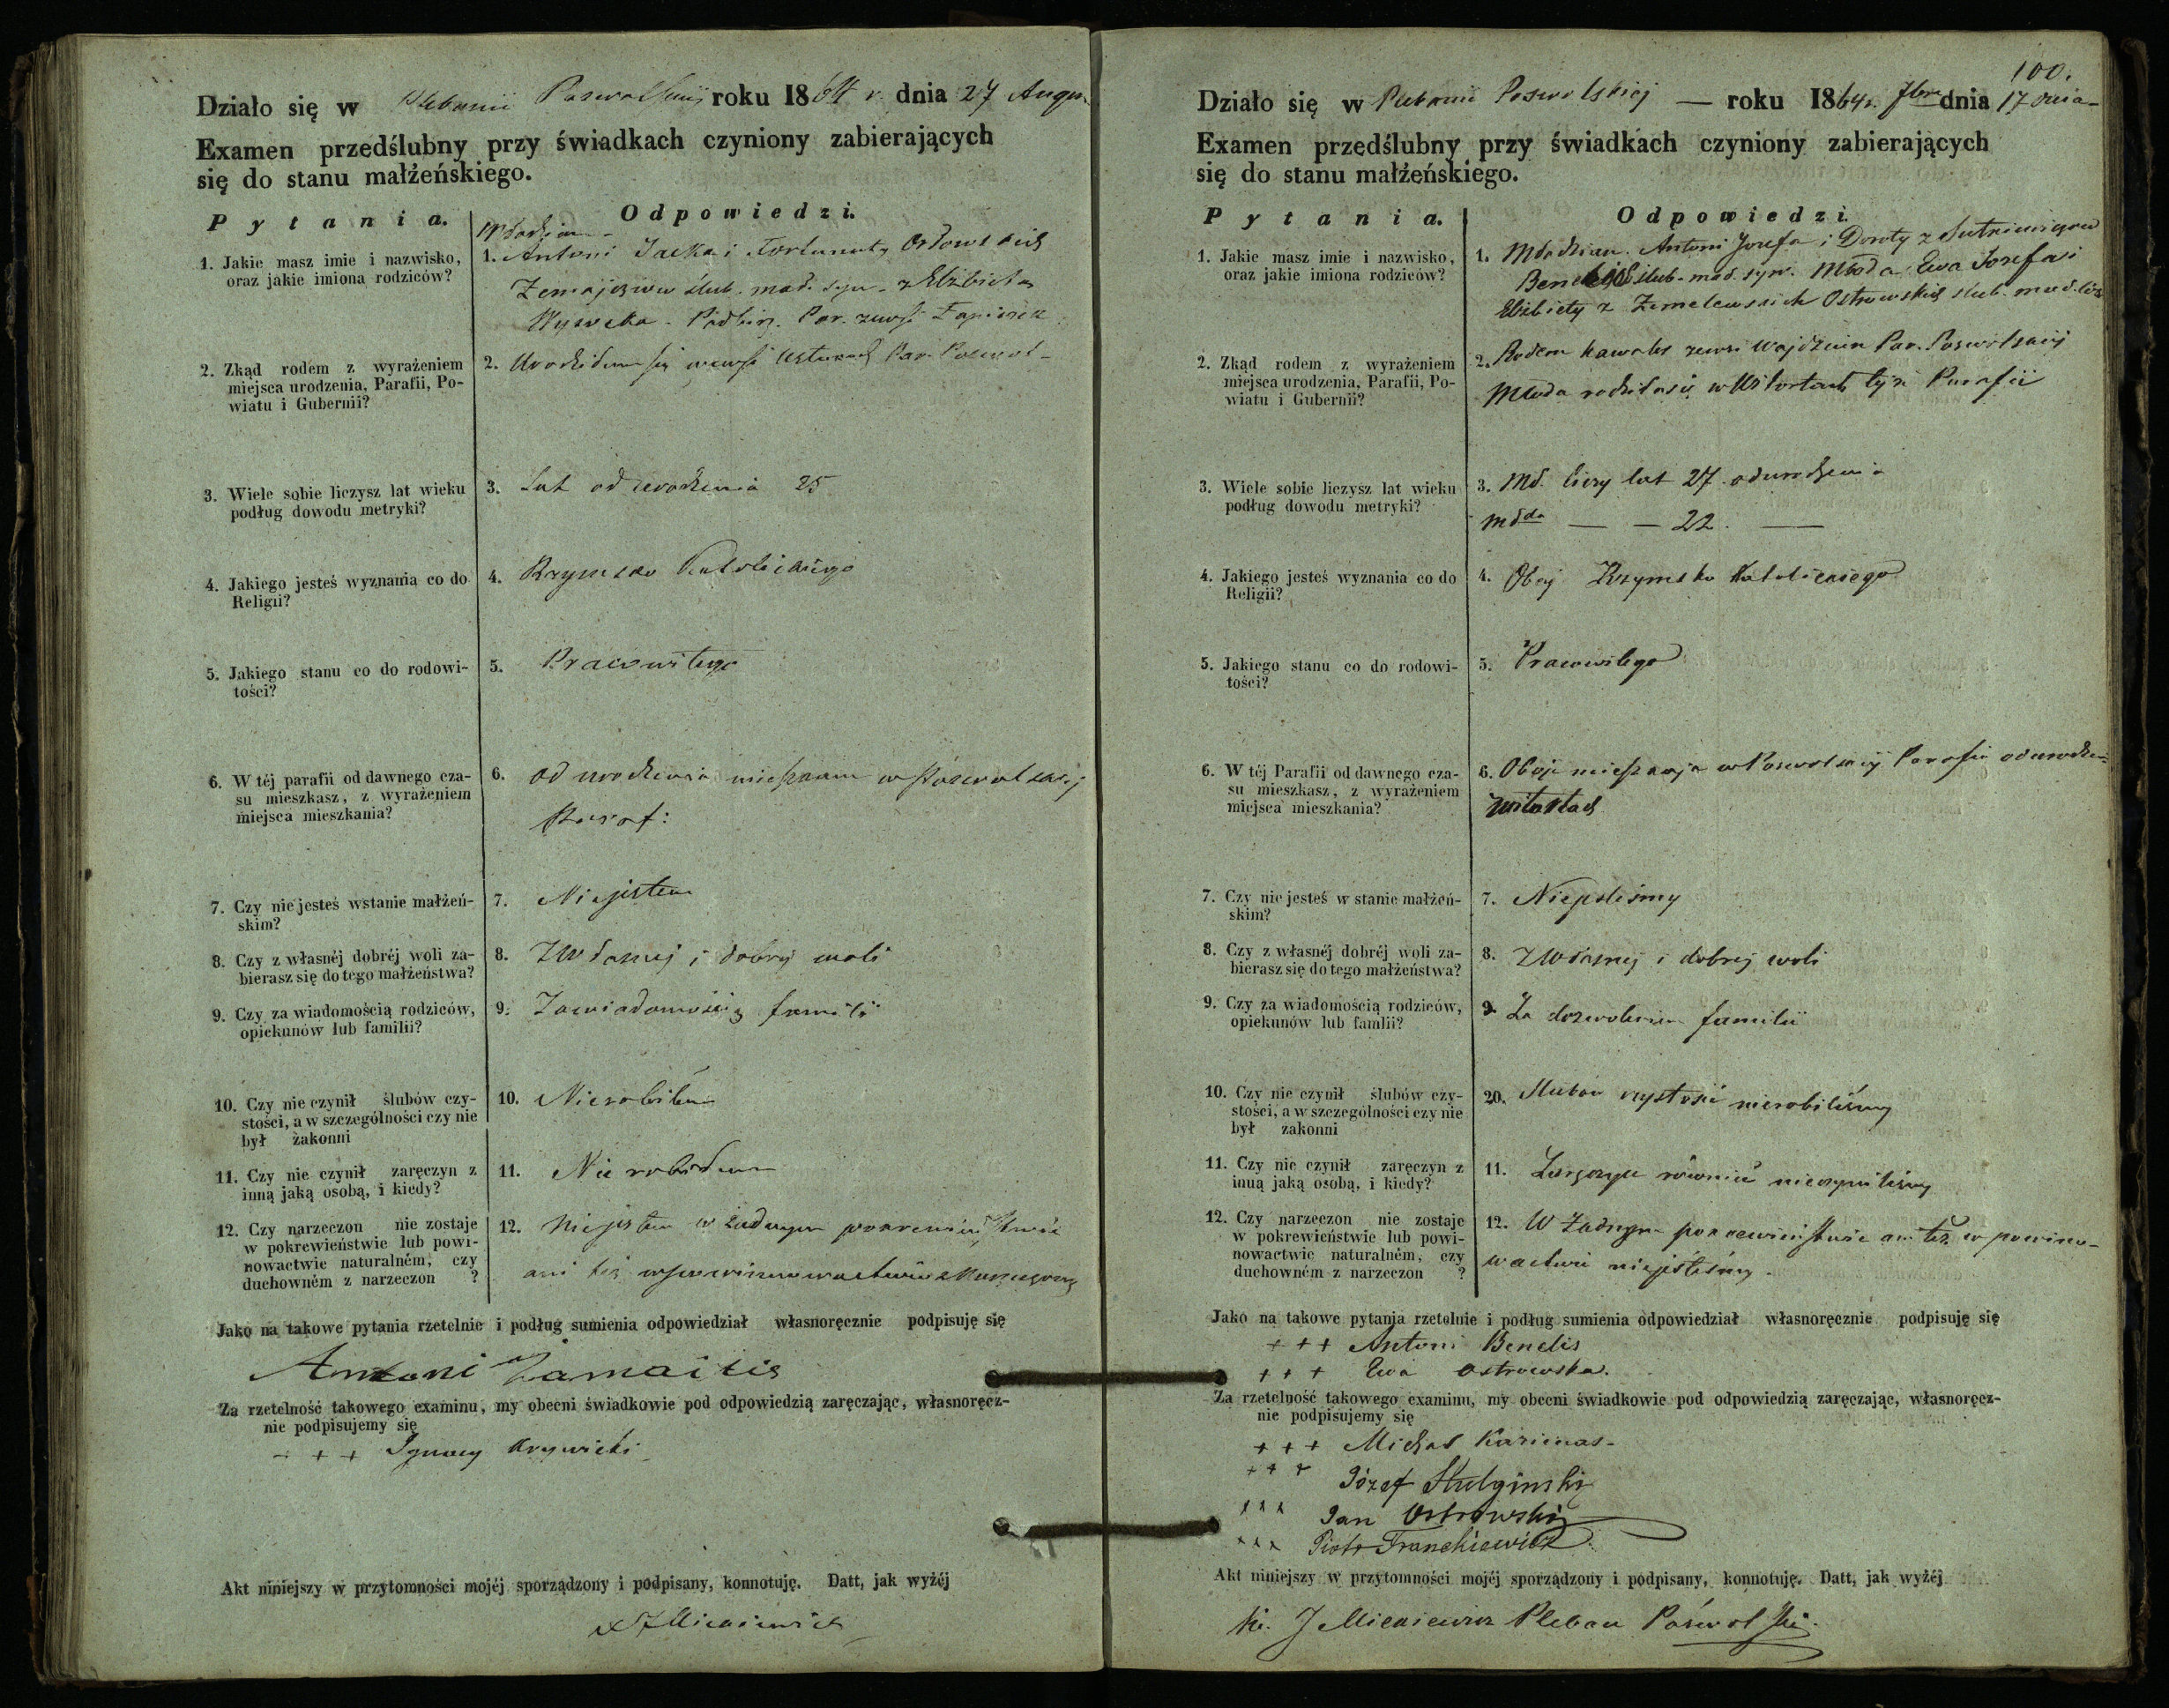 Działo się w Plebanii Poswolskiej roku 1864 r. dnia 27 Augu.
Examen przedślubny przy świadkach czyniony zabierających
się do stanu małżeńskiego.
Pytania.
Odpowiedzi.
1. Jakie masz imie i nazwisko,
oraz jakie imiona rodziców?
Młodzian
1. Antoni Jacka i Fortunaty Orłowskich
ślub. mał. syn. z Elżbietą
Par. zewsi
2. Zkąd rodem z wyrażeniem
miejsca urodzenia, Parafii, Po-
wiatu i Gubernii?
2. Urodziłem się wewsi Par. Poswol-
3. Wiele sobie liczysz lat wieku
podług dowodu metryki?
3. Lat od urodzenia 25
4. Jakiego jesteś wyznania co do
Religii?
4. Rzymsko Katolickiego
5. Jakiego stanu co do rodowi-
tości?
5. Pracowitego
6. W téj parafii od dawnego cza-
su mieszkasz, z wyrażeniem
miejsca mieszkania?
6. od urodzenia mieszkam w Poswolskiej
Paraf:
7. Czy nie jesteś wstanie małżeń-
skim?
7. Niejestem
8. Czy z własnéj dobréj woli za-
bierasz się do tego małżeństwa?
8. Z Własnej i dobrej woli
9. Czy za wiadomością rodziców,
opiekunów lub familii?
9. Zawiadomością familii
10. Czy nie czynił ślubów czy-
stości, a w szczególności czy nie
był zakonni
10. Nierobiłem
11. Czy nie czynił zaręczyn z
inną jaką osobą, i kiedy?
11. Nie robiłem
12. Czy narzeczon nie zostaje
w pokrewieństwie lub powi-
nowactwie naturalném, czy
duchowném z narzeczon ?
12. Niejestem w żadnym pokrewieństwie
ani też w powinowactwie z Narzeczoną
Jako na takowe pytania rzetelnie i podług sumienia odpowiedział własnoręcznie podpisuję się
Antoni Żamaitis
Za rzetelność takowego examinu, my obecni świadkowie pod odpowiedzią zaręczając, własnoręcz-
nie podpisujemy się
+ + + Ignacy Krywicki
Akt niniejszy w przytomności mojéj sporządzony i podpisany, konnotuję. Datt, jak wyżéj
X J Mickiewicz
100.
Działo się w Plebanii Poswolskiej — roku 1864 r. 7bra dnia 17 dnia
Examen przedślubny przy świadkach czyniony zabierających
się do stanu małżeńskiego.
Pytania.
Odpowiedzi.
1. Jakie masz imie i nazwisko,
oraz jakie imiona rodziców?
1. Młodzian. Antoni Jozefa i Doroty z
ślub. mał. syn. Młoda Ewa Jozefa i
Elżbiety z Ostrowskich ślub. mał. có.
2. Zkąd rodem z wyrażeniem
miejsca urodzenia, Parafii, Po-
wiatu i Gubernii?
2. Rodem kawaler zewsi Par. Poswolskiej
Młoda rodziłasię w tejże Parafii
3. Wiele sobie liczysz lat wieku
podług dowodu metryki?
3. Mł. liczy lat 27 odurodzenia
Młda — — 22. —
4. Jakiego jesteś wyznania co do
Religii?
4. Oboj Rzymsko Katolickiego
5. Jakiego stanu co do rodowi-
tości?
5. Pracowitego
6. W téj Parafii od dawnego cza-
su mieszkasz, z wyrażeniem
miejsca mieszkania?
6. Oboje mieszkają w Poswolskiej Parafii odurodze-
7. Czy nie jesteś w stanie małżeń-
skim?
7. Niejesteśmy
8. Czy z własnéj dobréj woli za-
bierasz się do tego małżeństwa?
8. Z Własnej i dobrej woli
9. Czy za wiadomością rodziców,
opiekunów lub famlii?
9. Za dozwoleniem familii
10. Czy nie czynił ślubów czy-
stości, a w szczególności czy nie
był zakonni
20. Slubow czystości nierobiliśmy
11. Czy nie czynił zaręczyn z
inną jaką osobą, i kiedy?
11. Zaręczyn również nieczyniliśmy
12. Czy narzeczon nie zostaje
w pokrewieństwie lub powi-
nowactwie naturalném, czy
duchowném z narzeczon ?
12. W Żadnym pokrewieństwie ani też w powino-
wactwie niejesteśmy.
Jako na takowe pytania rzetelnie i podług sumienia odpowiedział własnoręcznie podpisuję się
+ + + Antoni Benelis
+ + + Ewa Ostrowska.
Za rzetelność takowego examinu, my obecni świadkowie pod odpowiedzią zaręczając, własnoręcz-
nie podpisujemy się
+ + + Michał Karimas
+ + + Józef Stulginski
x x x Jan Ostrowski
x x x Piotr Franckiewicz
Akt niniejszy w przytomności mojéj sporządzony i podpisany, konnotuję. Datt, jak wyżéj
Ks. J Mickiewicz Pleban Poswolski.